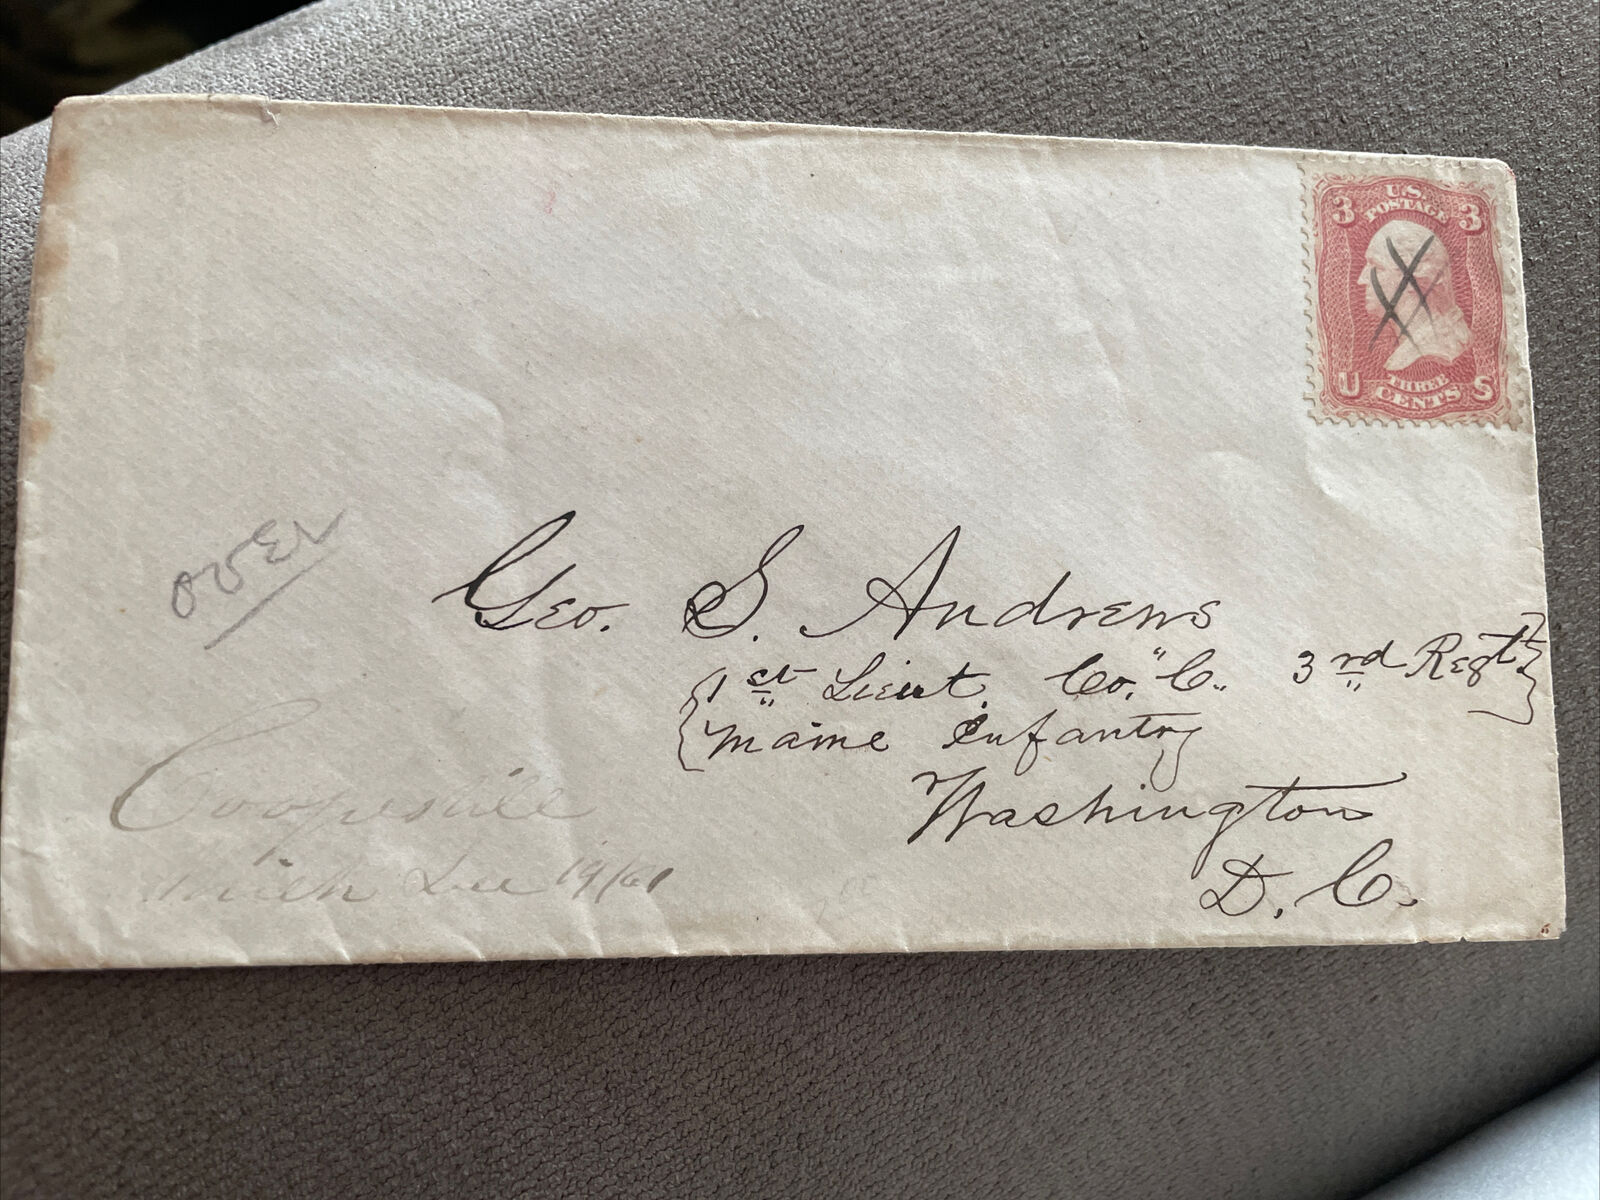 U.S.
POSTAGE
3 3
THREE
CENTS
U S
OVER
Geo. S. Andrews
1st Lieut. Co. "C" 3rd Regt.
Maine Infantry
Washington
D. C.
Coopersville
Mich Dec 19/61